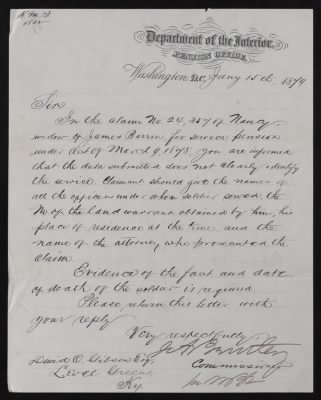 Department of the Interior,
PENSION OFFICE,
Washington, D.C., Jany 15th, 1879
Sir
In the claim No. 24,357 of Nancy,
widow of James Barron for service pension
under act of March 9, 1878, you are informed
that the data submitted does not clearly identify
the service. Claimant should give the names of
all the officers under whom soldier served, the
No of the land warrant obtained by him, his
place of residence at the time, and the
name of the attorney who prosecuted the
claim.
Evidence of the fact and date
of death of the soldier is required.
Please return this letter with
your reply
Very respectfully
J. A. Bentley
Commissioner
David O. Gibson Esq.
Level Green,
Ky.